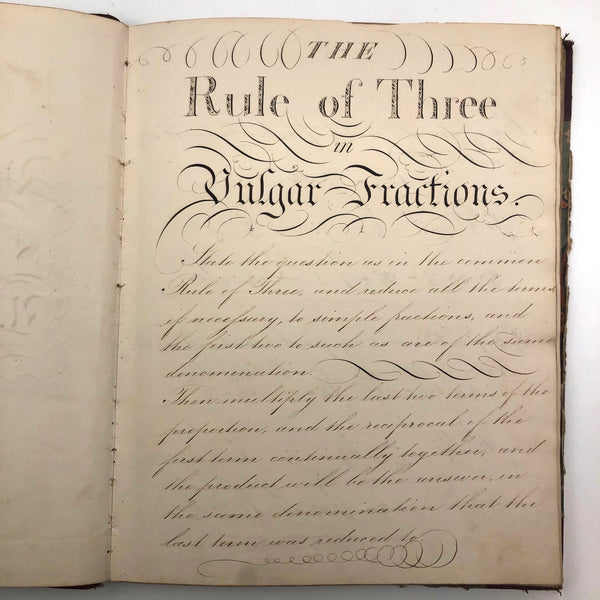 THE
Rule of Three
in
Vulgar Fractions.
State the question as in the common
Rule of Three, and reduce all the terms
if necessary, to simple fractions, and
the first two to such as are of the same
denomination.
Then multiply the last two terms of the
proportion, and the reciprocal of the
first term continually together, and
the product will be the answer, in
the same denomination that the
last term was reduced to.